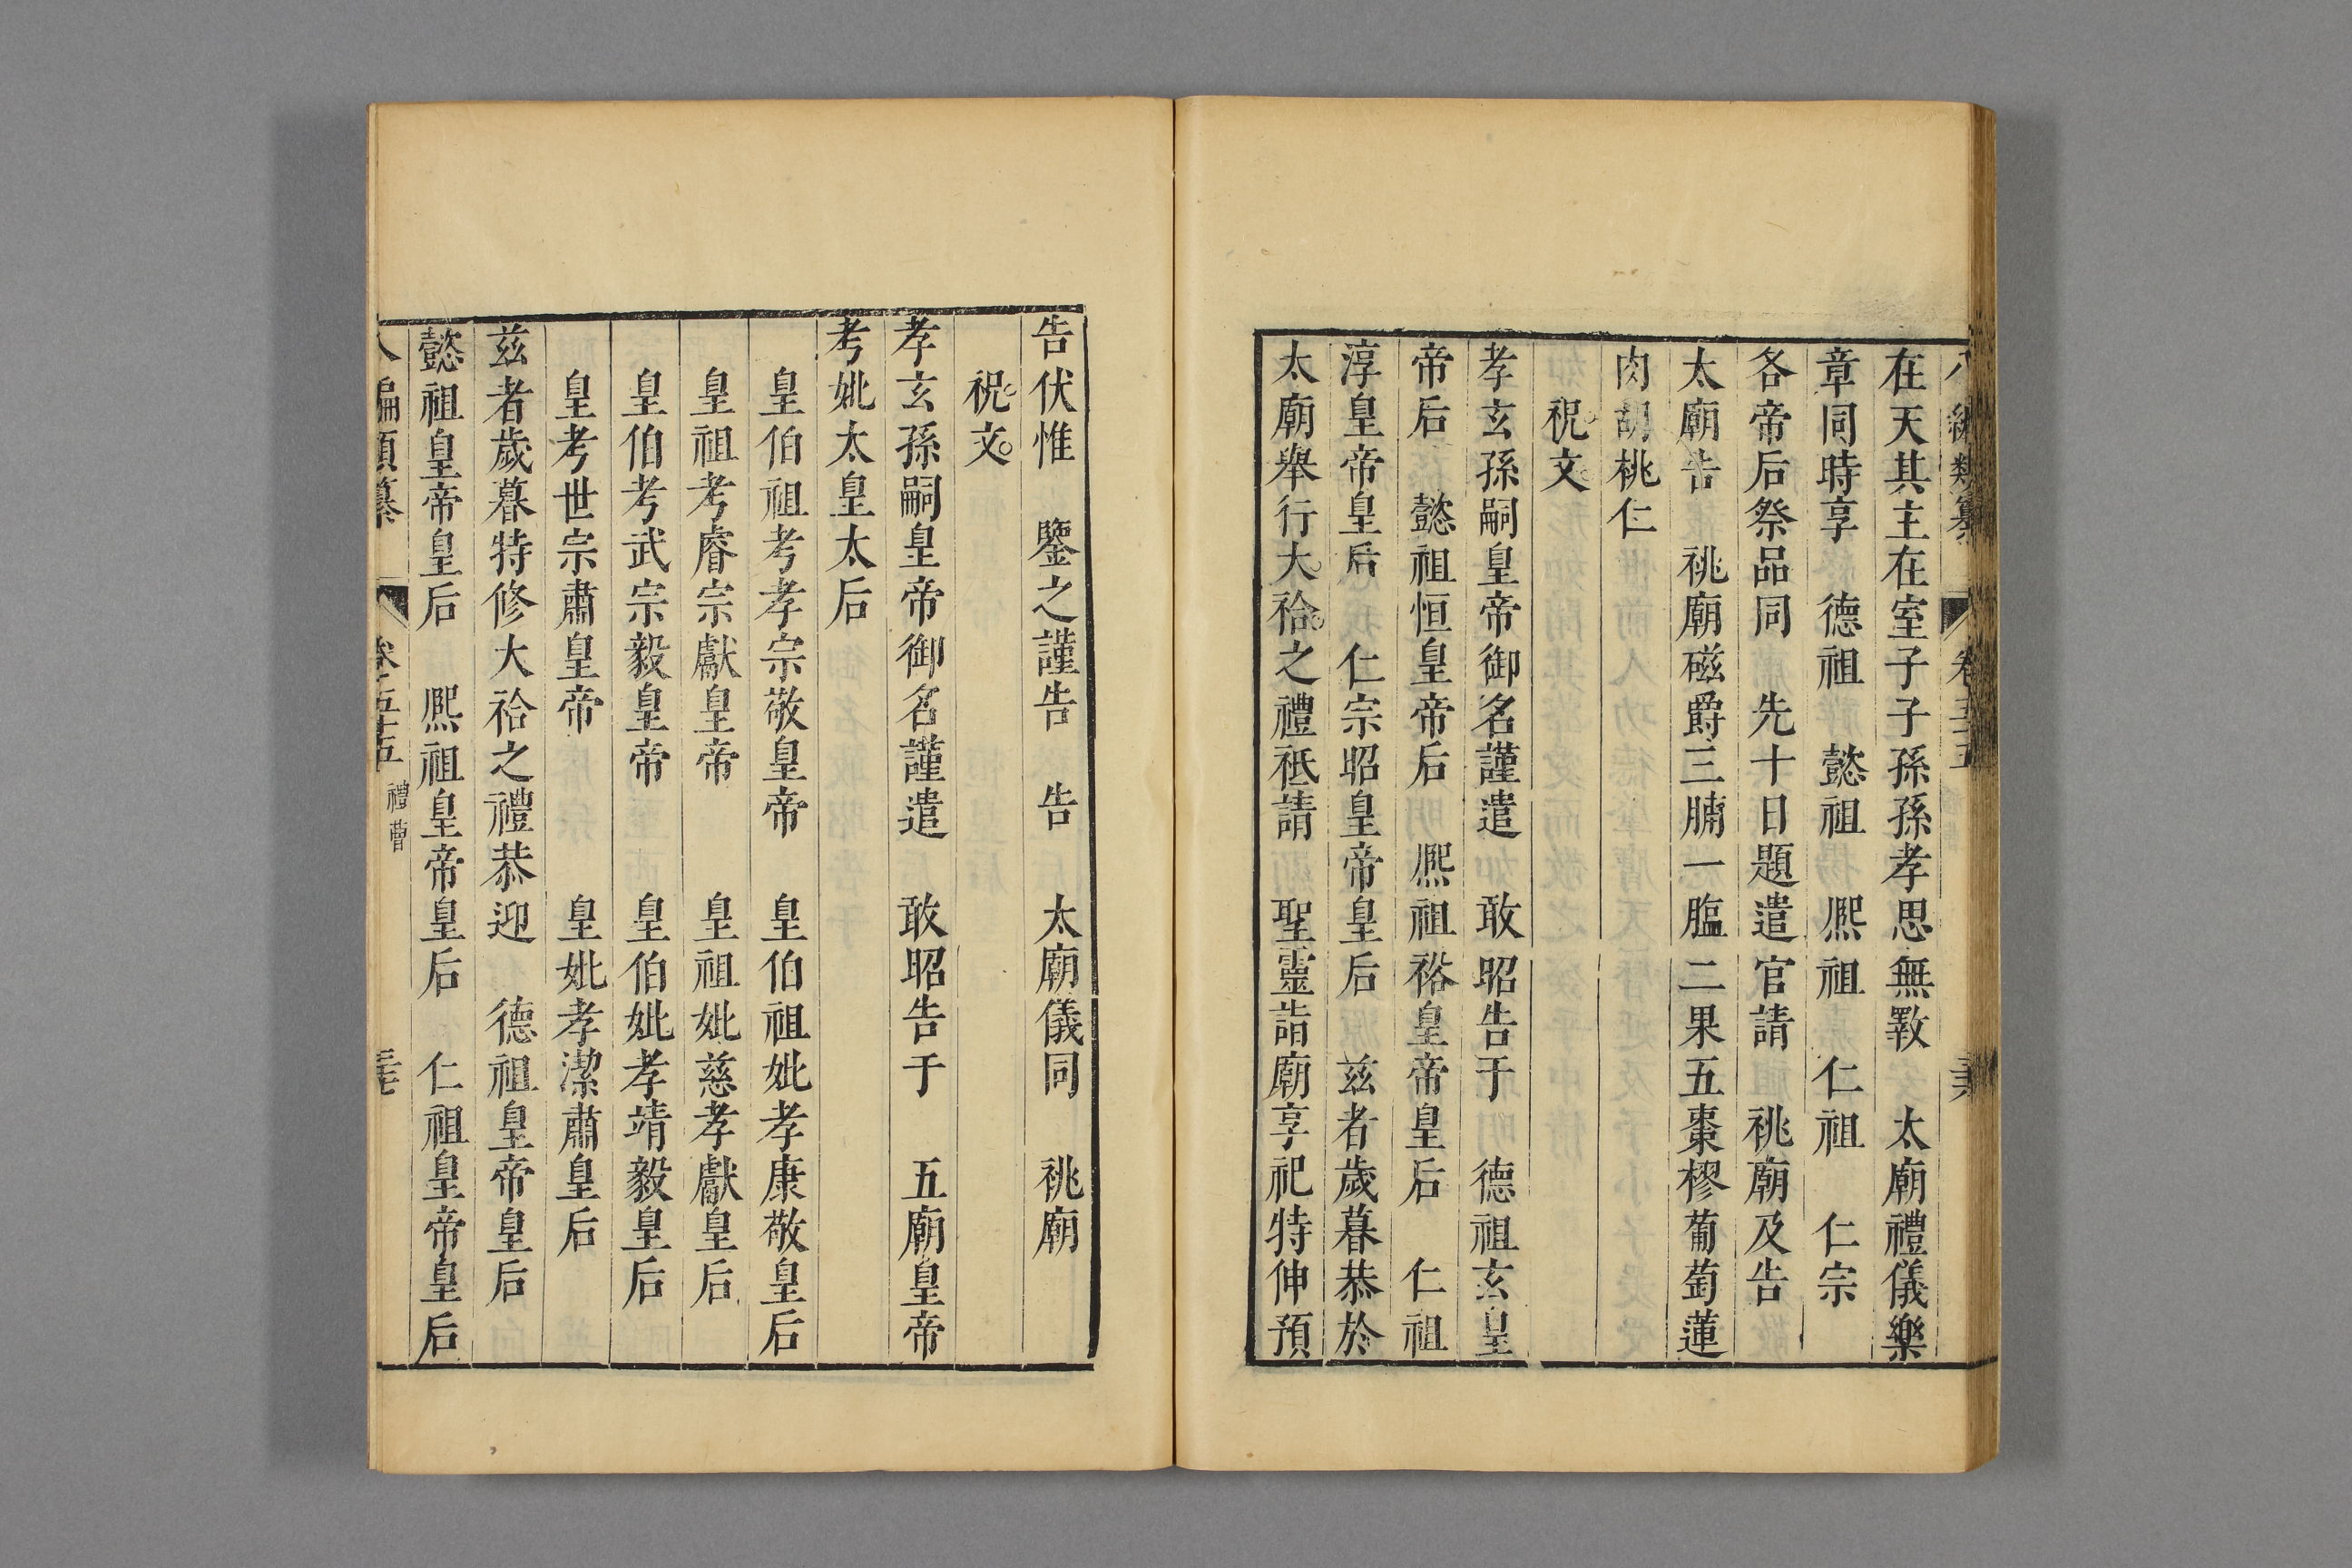 八編類纂 卷五十五 三六
在天其主在室子子孫孫孝思無斁 太廟禮儀樂
章同時享 德祖 懿祖 熙祖 仁祖 仁宗
各帝后祭品同 先十日題遣官請 祧廟及告
太廟告 祧廟磁爵三脯一醢二果五棗樛葡萄蓮
肉胡桃仁
祝文
孝玄孫嗣皇帝御名謹遣 敢昭告于 德祖玄皇
帝后 懿祖恒皇帝后 熙祖裕皇帝皇后 仁祖
淳皇帝皇后 仁宗昭皇帝皇后 兹者歲暮恭於
太廟舉行大祫之禮祇請 聖靈詣廟享祀特伸預
告伏惟 鑒之謹告 告 太廟儀同 祧廟
祝文
孝玄孫嗣皇帝御名謹遣 敢昭告于 五廟皇帝
考妣太皇太后
皇伯祖考孝宗敬皇帝 皇伯祖妣孝康敬皇后
皇祖考睿宗獻皇帝 皇祖妣慈孝獻皇后
皇伯考武宗毅皇帝 皇伯妣孝靖毅皇后
皇考世宗肅皇帝 皇妣孝潔肅皇后
兹者歲暮特修大祫之禮恭迎 德祖皇帝皇后
懿祖皇帝皇后 熙祖皇帝皇后 仁祖皇帝皇后
八編類纂 卷五十五 禮曹 三七